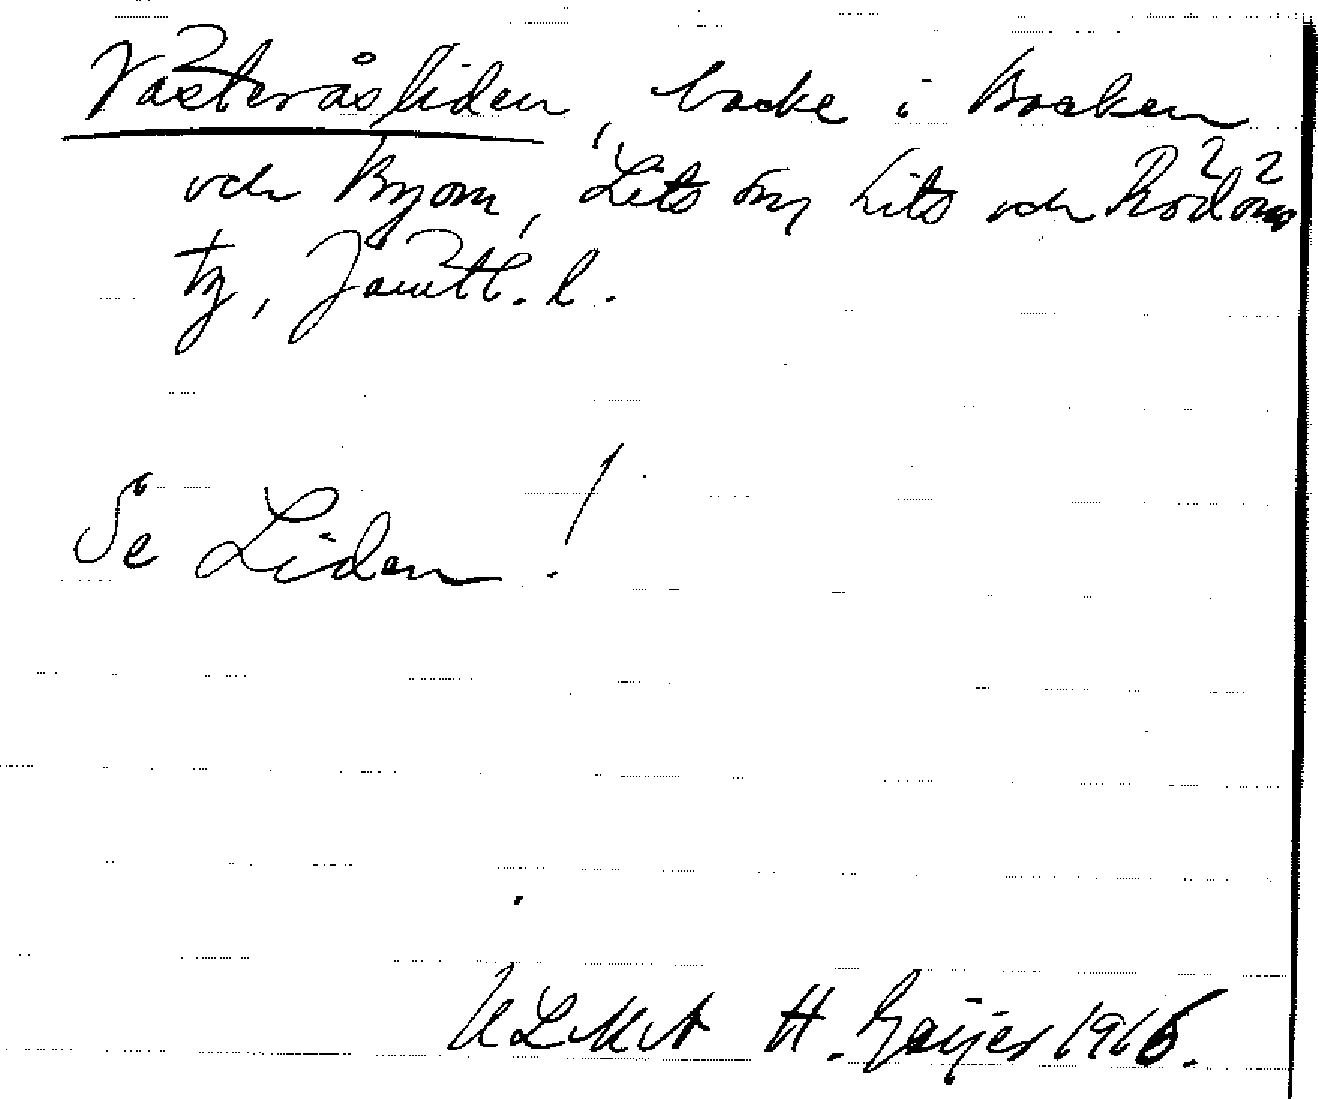 Västeråsliden, backe i Backen
och Byom, Lits sn, Lits och Rödöns
tg, Jämtl. l.
Se Liden!
ULMA H. Geijer 1916.